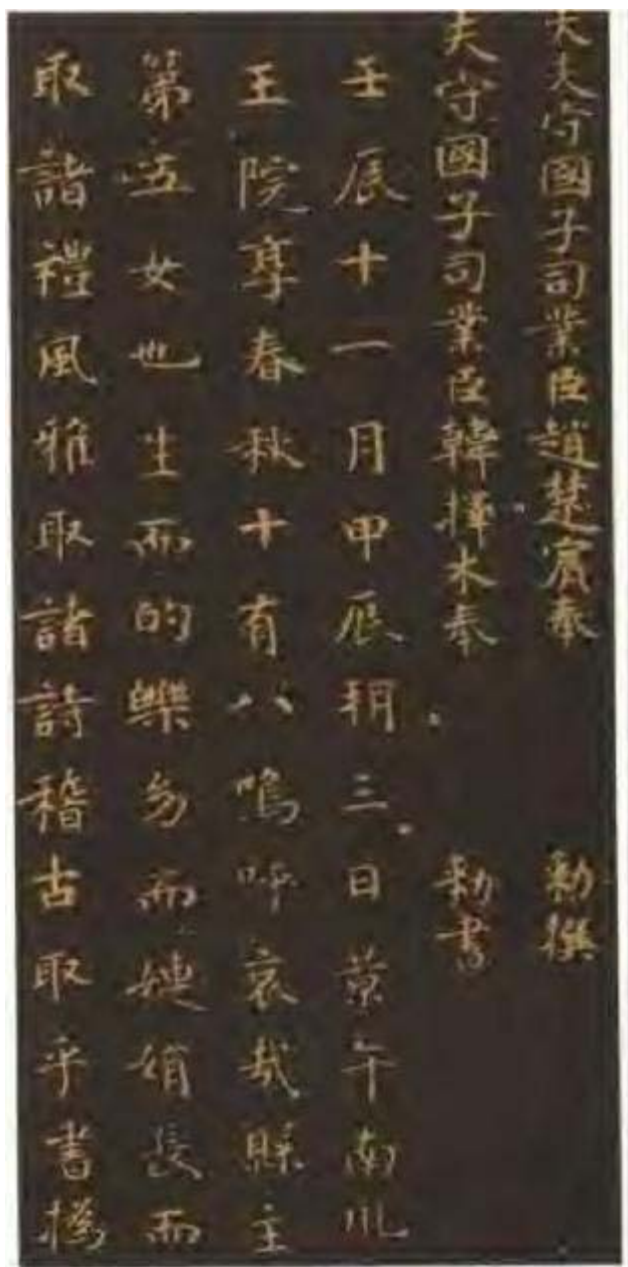 大夫守國子司業臣趙楚賓奉 勅撰
夫守國子司業臣韓擇木奉 勅書
壬辰十一月甲辰朔三日景午南川
王院享春秋十有八嗚呼哀哉縣主
第五女也生而的皪幼而娟長而
取諸禮風雅取諸詩稽古取乎書